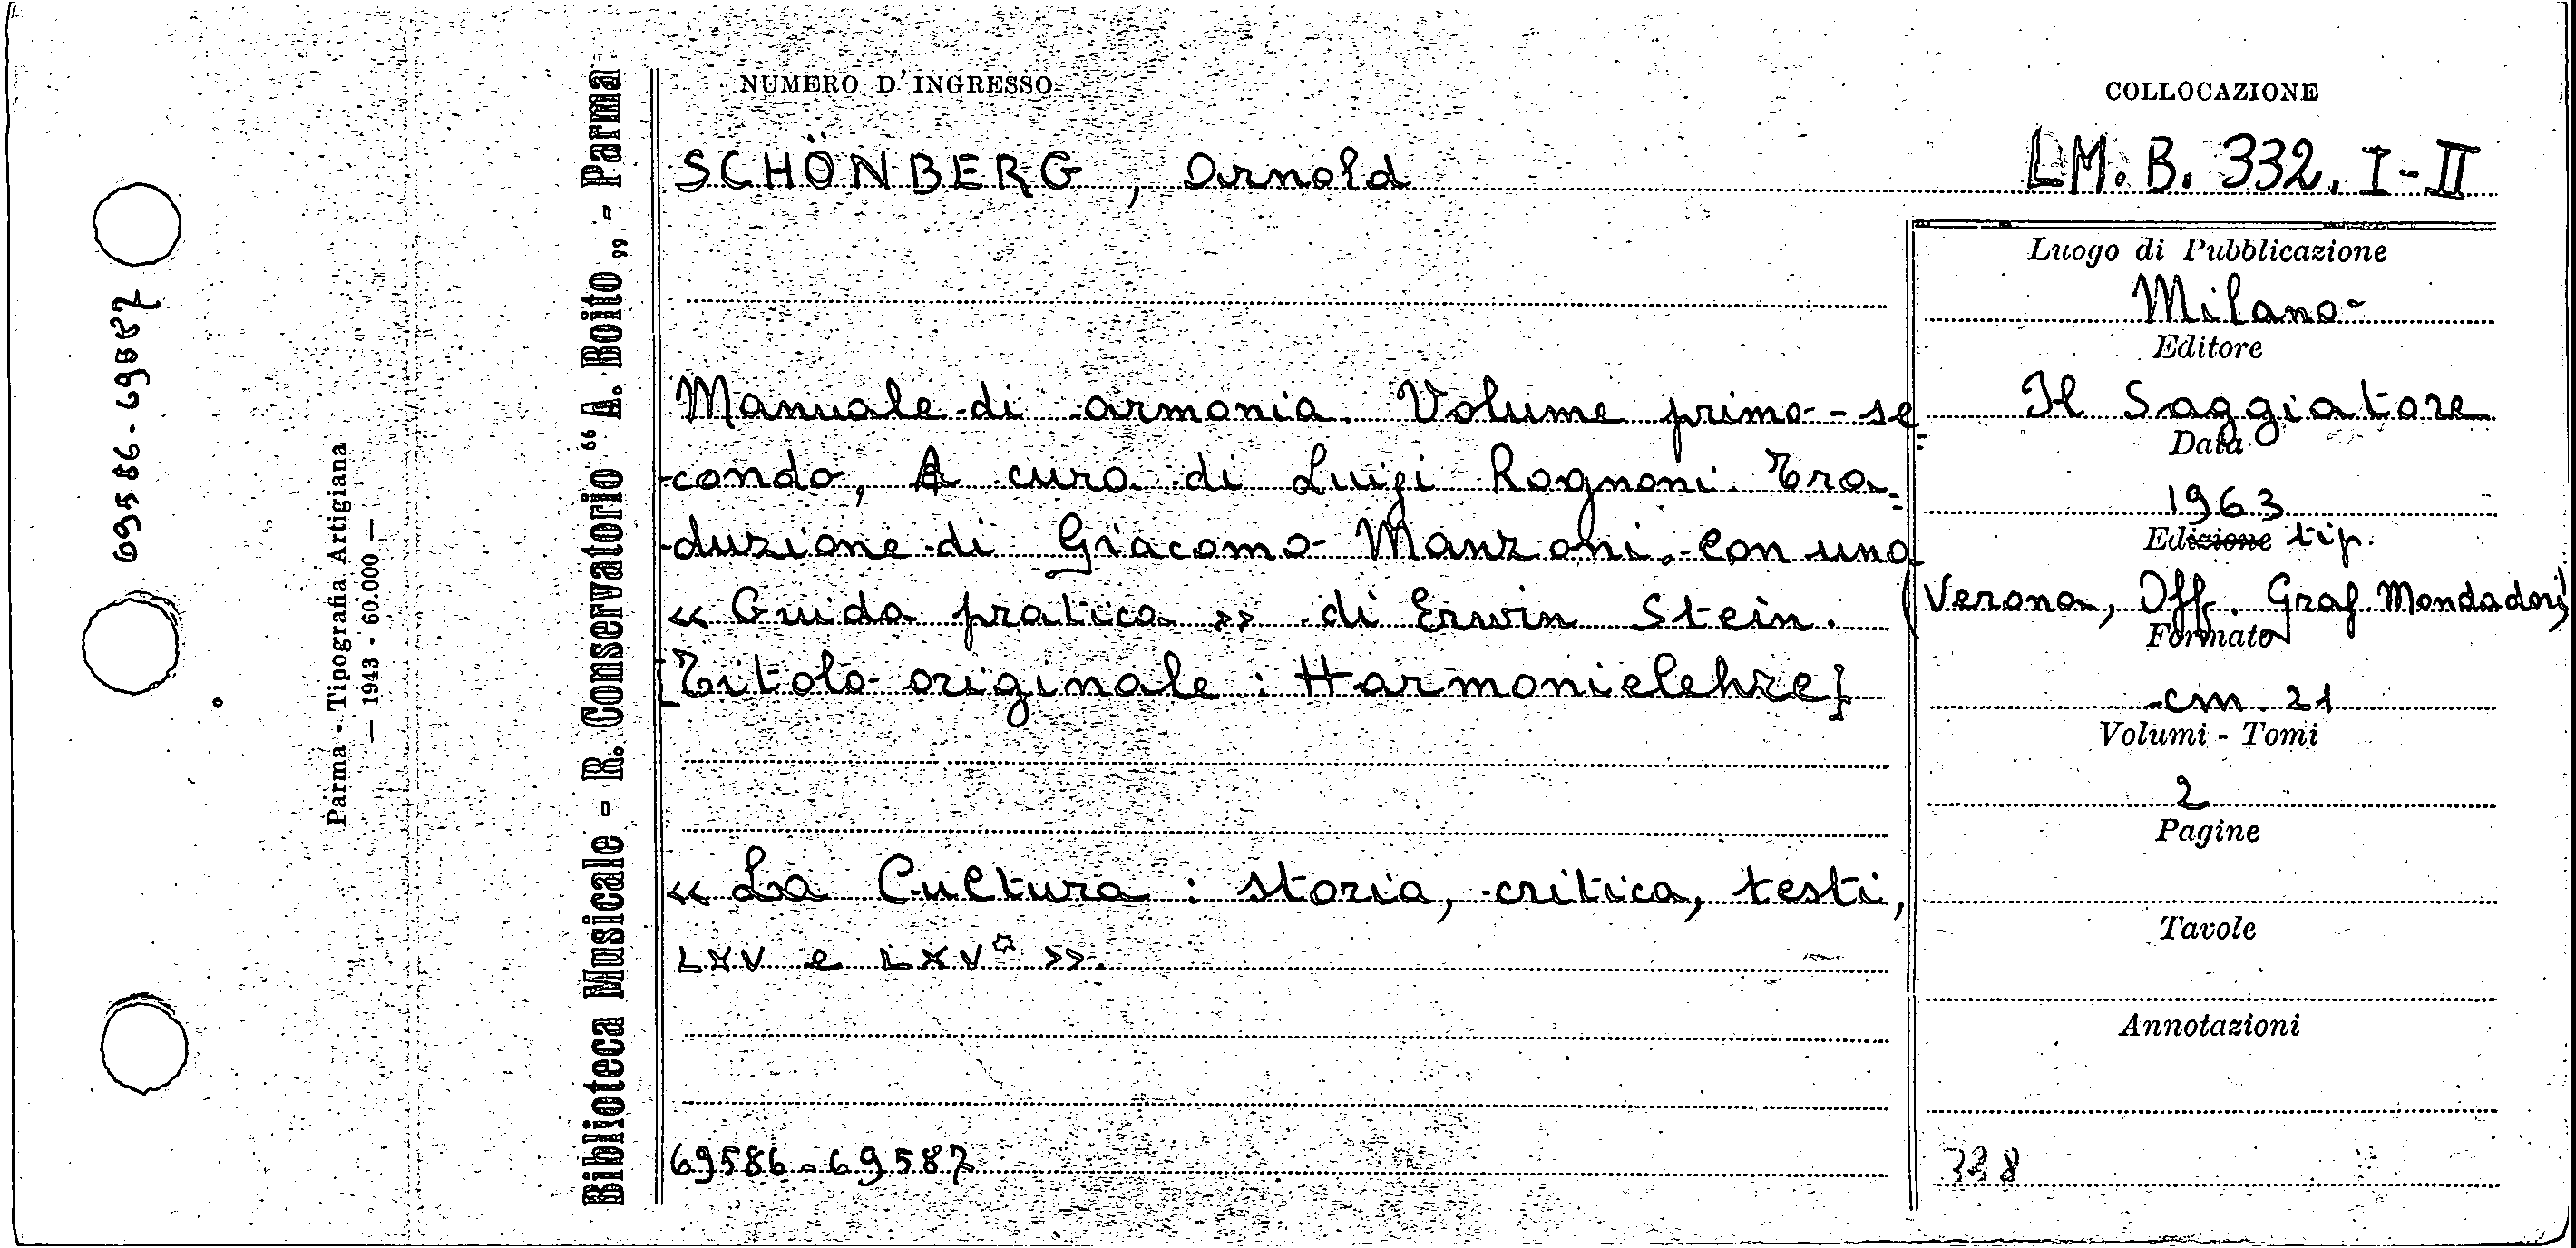 NUMERO D'INGRESSO
COLLOCAZIONE
SCHÖNBERG, Arnold
LM. B. 332. I-II
Manuale di armonia. Volume primo-se
condo, A cura di Luigi Rognoni. Tra-
duzione di Giacomo Manzoni, con una
« Guida pratica » di Erwin Stein.
[Titolo originale: Harmonielehre]
« La Cultura: storia, critica, testi,
LXV e LXV* ».
69586-69587
Luogo di Pubblicazione
Milano
Editore
Il Saggiatore
Data
1963
Edizione tip.
(Verona, Off. Graf. Mondadori)
Formato
cm. 21
Volumi - Tomi
2
Pagine
Tavole
Annotazioni
Biblioteca Musicale - R. Conservatorio “ A. Boito „ - Parma
Parma - Tipografia Artigiana
— 1943 - 60.000 —
69586-69587